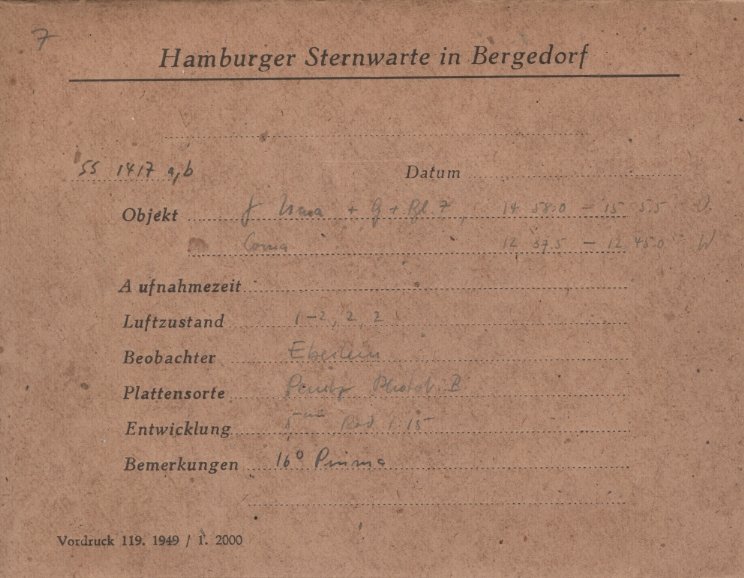 7
Hamburger Sternwarte in Bergedorf
SS 1417 a,b Datum
Objekt + G + Bl. 7, 14 58.0 – 15 5.5 O
Coma 12 37.5 – 12 45.0 W
Aufnahmezeit
Luftzustand 1–2, 2, 2
Beobachter
Plattensorte Photo B
Entwicklung Rod. 1:15
Bemerkungen 16° Prisma
Vordruck 119. 1949 / 1. 2000